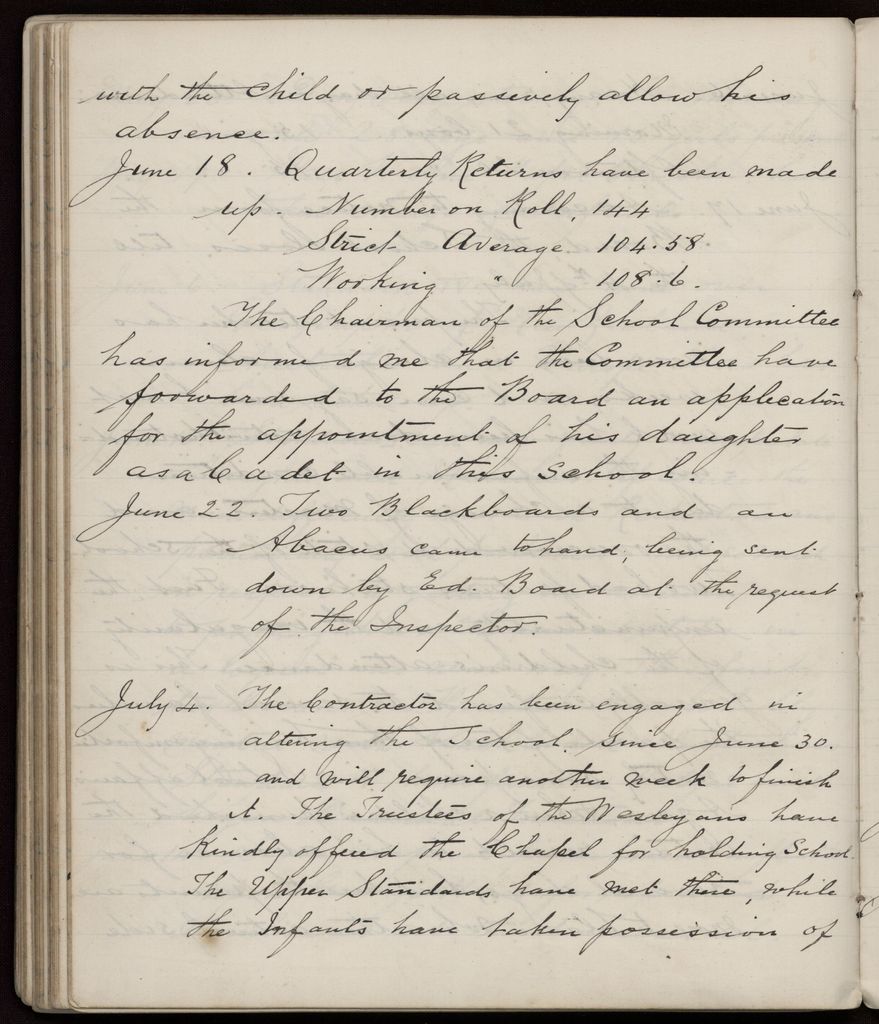 with the child or passively allow his
absence.
June 18. Quarterly Returns have been made
up. Number on Roll, 144
Strict Average 104.58.
Working " 108.6.
The Chairman of the School Committee
has informed me that the Committee have
forwarded to the Board an application
for the appointment of his daughter
as a Cadet in this School.
June 22. Two Blackboards and an
Abacus came to hand, being sent
down by Ed. Board at the request
of the Inspector.
July 4. The Contractor has been engaged in
altering the School since June 30.
and will require another week to finish
it. The Trustees of the Wesleyans have
kindly offered the Chapel for holding School.
The Upper Standards have met there, while
the Infants have taken possession of